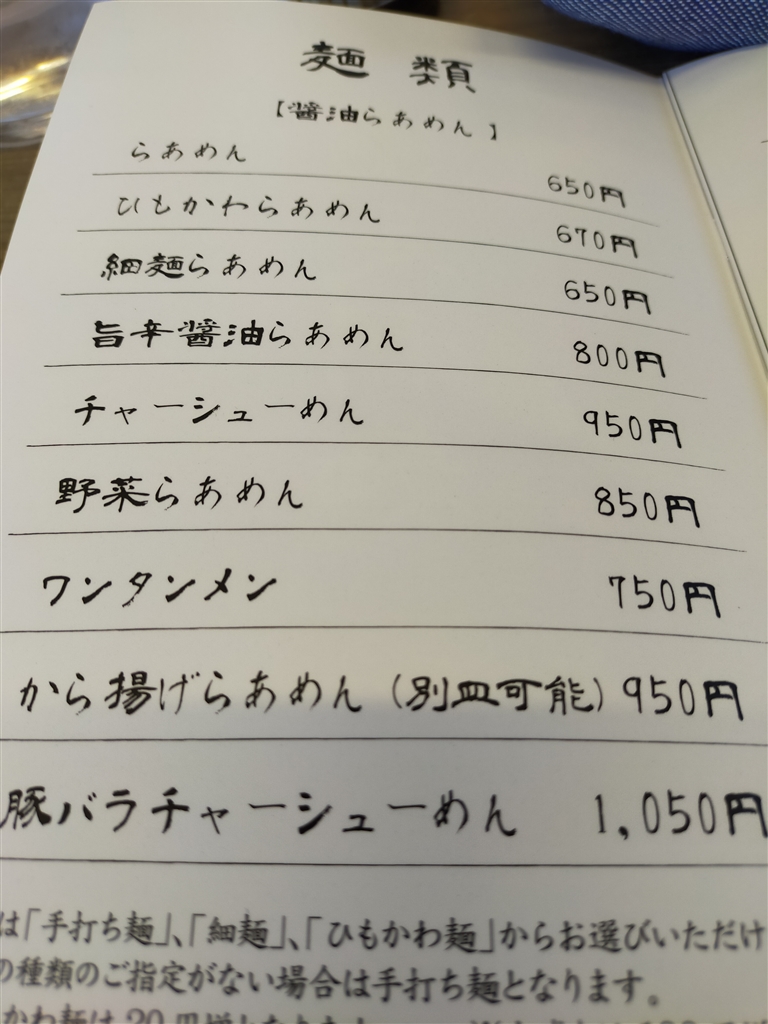 麺 類
【醤油らあめん】
らあめん 650円
ひもかわらあめん 670円
細麺らあめん 650円
旨辛醤油らあめん 800円
チャーシューめん 950円
野菜らあめん 850円
ワンタンメン 750円
から揚げらあめん (別皿可能) 950円
豚バラチャーシューめん 1,050円
は「手打ち麺」、「細麺」、「ひもかわ麺」からお選びいただけ
の種類のご指定がない場合は手打ち麺となります。
かわ麺は20円増